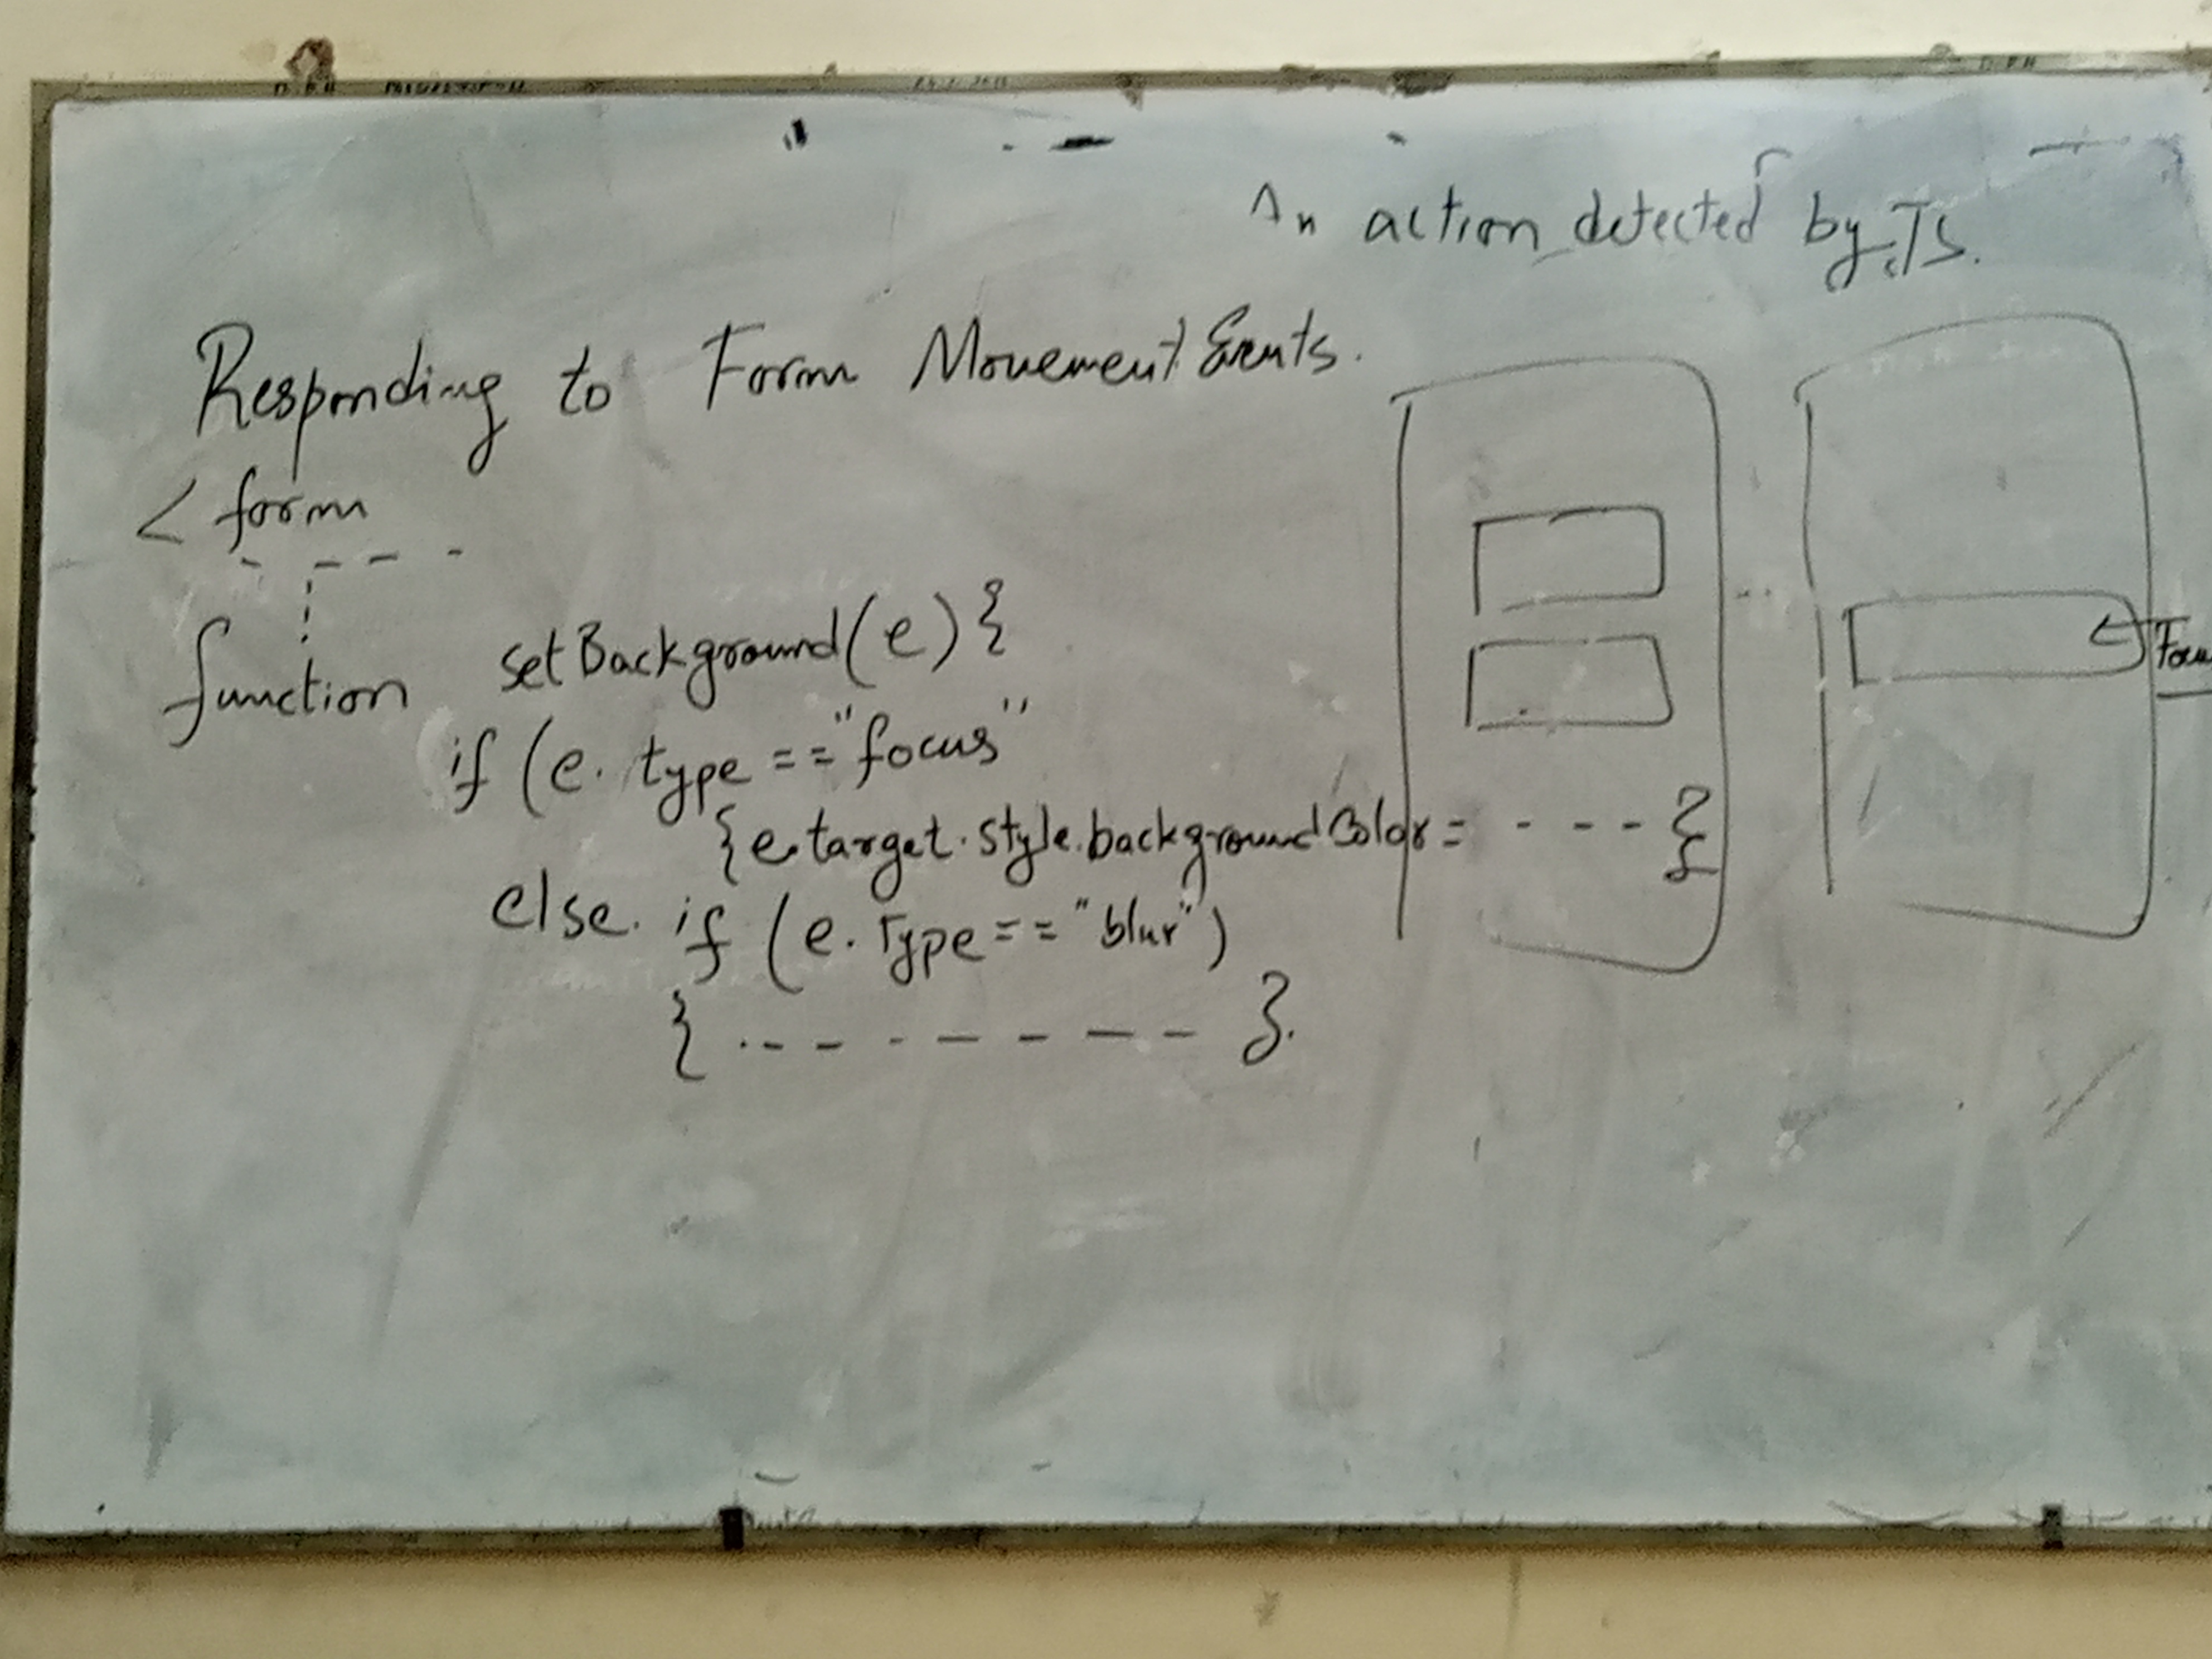 An action detected by JS.
Responding to Form Movement Events.
< form
function setBackground(e) {
if (e. type == "focus"
{e.target.style.backgroundColor = - - - - }
else. if (e. Type == "blur")
{ - - - - - - - - }.